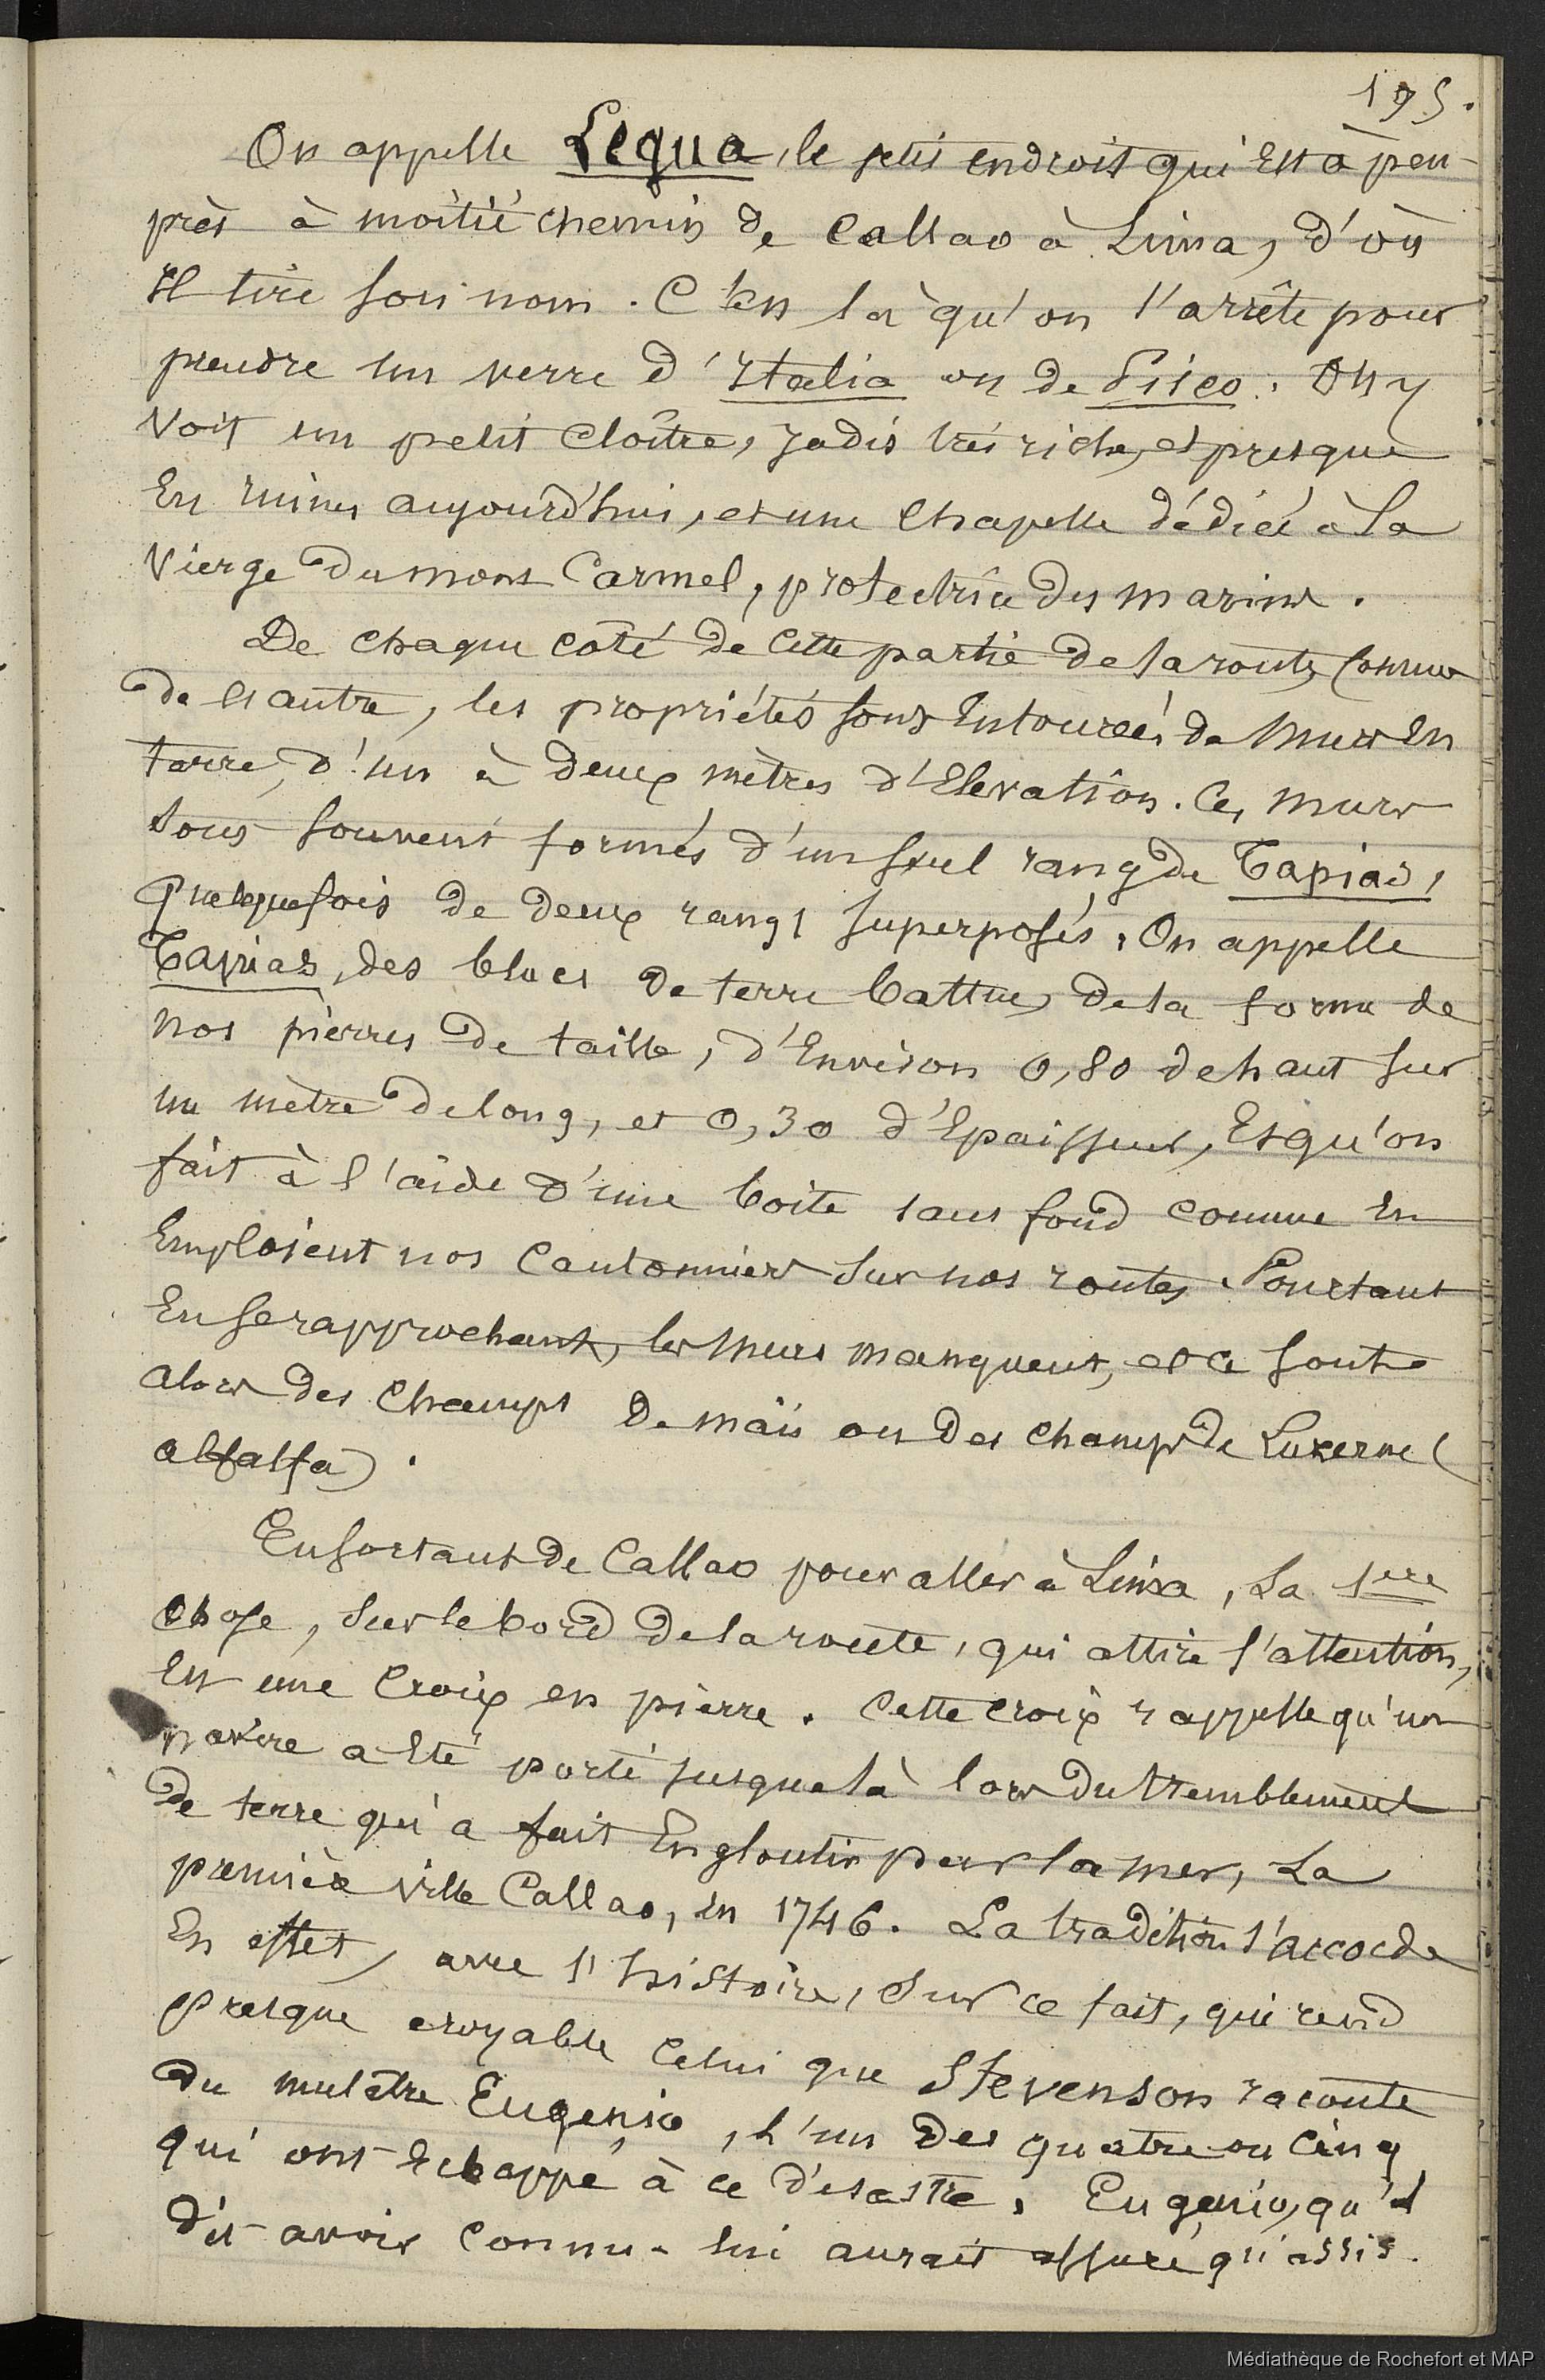 195.
On appelle Lequa, le petit endroit qui est à peu
près à moitié chemin de Callao à Lima, d'où
il tire son nom. C'est là qu'on s'arrête pour
prendre un verre d'Italia ou de Pisco. On y
voit un petit cloître, jadis très riche, et presque
en ruines aujourd'hui, et une chapelle dédiée à la
Vierge du mont Carmel, protectrice des marins.
De chaque côté de cette partie de la route, comme
de l'autre, les propriétés sont entourées de murs en
terre, d'un à deux mètres d'élevation. Ces murs
sont souvent formés d'un seul rang de Tapias,
quelquefois de deux rangs superposés. On appelle
Tapias, des blocs de terre battue, de la forme de
nos pierres de taille, d'environ 0,80 de haut sur
un mètre de long, et 0,30 d'épaisseur, et qu'on
fait à l'aide d'une boite sans fond comme en
emploient nos cantonniers sur nos routes. Pourtant
en se rapprochant, les murs manquent, et ce sont
alors des champs de maïs ou des champs de Luzerne (
alfalfa).
En sortant de Callao pour aller à Lima, la 1ere
chose, sur le bord de la route, qui attire l'attention,
est une croix en pierre. Cette croix rappelle qu'un
navire a été porté jusque là lors du tremblement
de terre qui a fait engloutir par la mer, la
première ville Callao, en 1746. La tradition s'accorde
en effet, avec l'histoire, sur ce fait, qui rend
presque croyable celui que Stevenson raconte
du mulâtre Eugenio, l'un des quatre ou cinq
qui ont échappé à ce désastre. Eugenio, qu'il
dit avoir connu - lui aurait assuré qu'assis.
Médiathèque de Rochefort et MAP